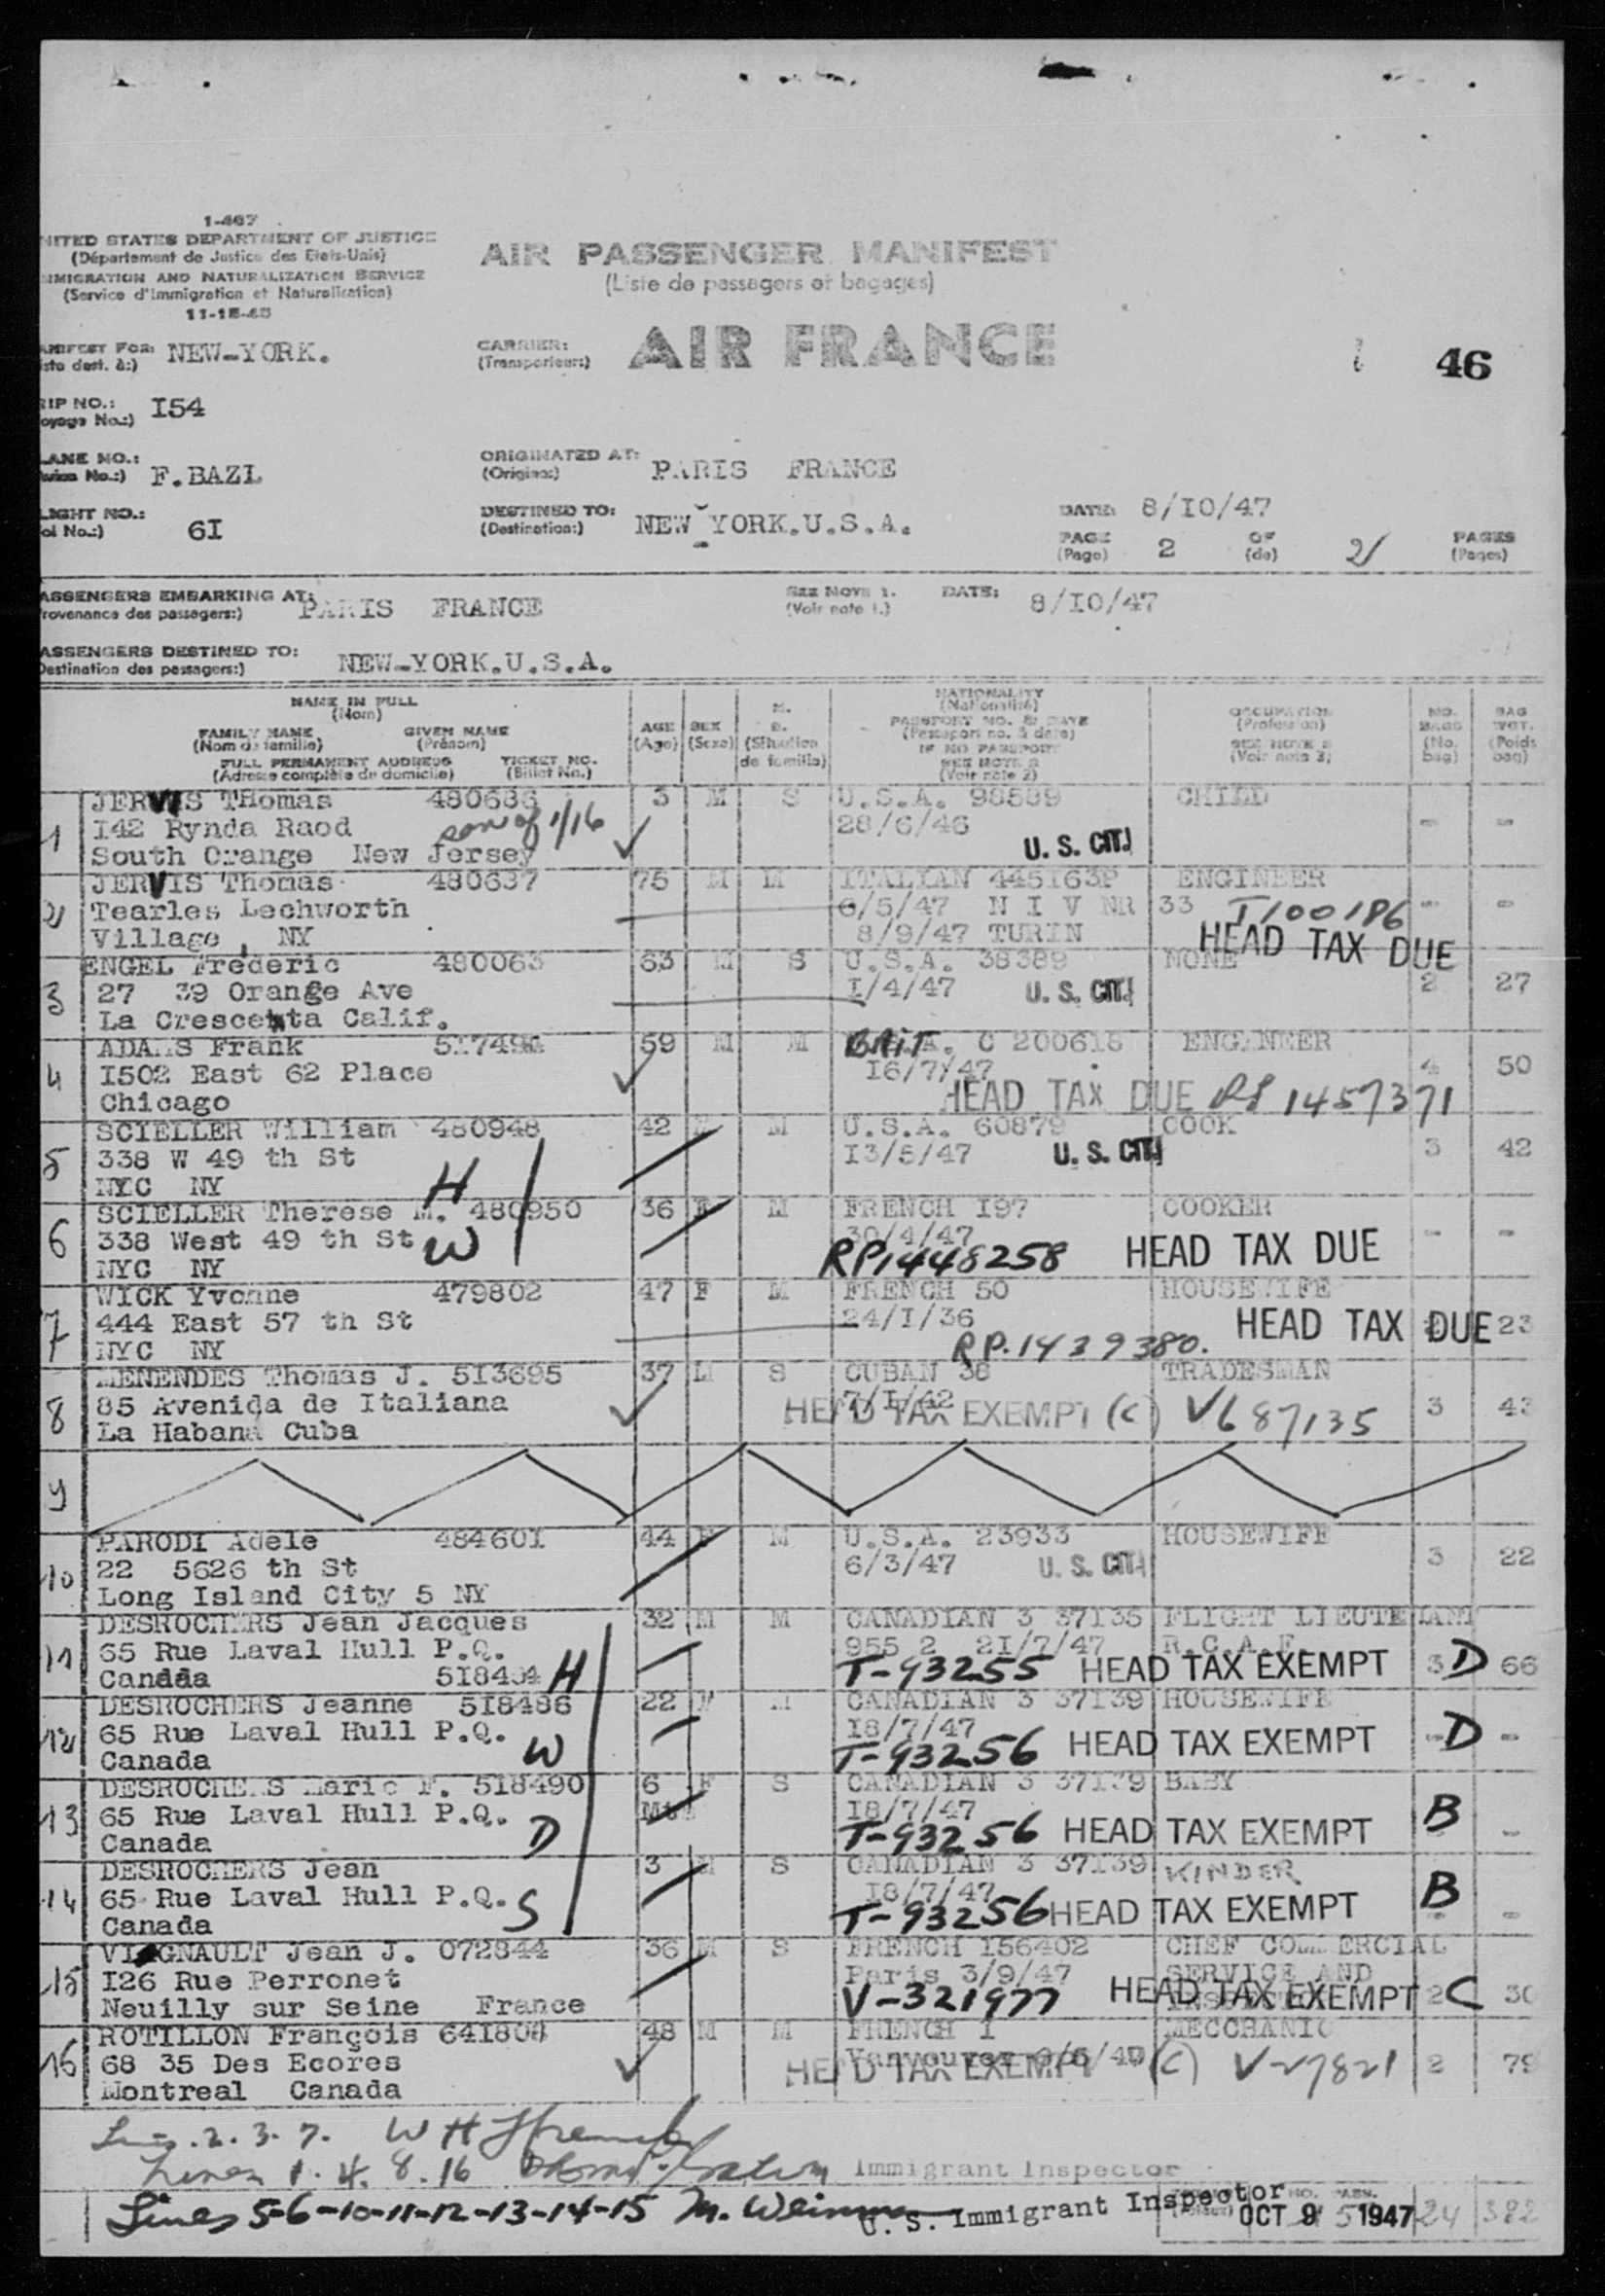 1-467
NITED STATES DEPARTMENT OF JUSTICE
(Département de Justice des Etats-Unis)
MMIGRATION AND NATURALIZATION SERVICE
(Service d'Immigration et Naturalisation)
11-15-45
AIR PASSENGER MANIFEST
(Liste de passagers et bagages)
ANIFEST FOR: NEW-YORK.
iste dest. à:)
CARRIER: AIR FRANCE
(Transporteur:)
46
RIP NO.: I54
oyage No.:)
LANE NO.: F.BAZL
No.:)
ORIGINATED AT: PARIS FRANCE
(Origine:)
LIGHT NO.: 6I
ol No.:)
DESTINED TO: NEW YORK.U.S.A.
(Destination:)
DATE: 8/IO/47
PAGE 2 OF 2 PAGES
(Page) (de) (Pages)
ASSENGERS EMBARKING AT: PARIS FRANCE
rovenance des passagers:)
SEE NOTE 1. DATE: 8/IO/47
(Voir note 1.)
ASSENGERS DESTINED TO: NEW-YORK.U.S.A.
Destination des passagers:)
NAME IN FULL
(Nom)
FAMILY NAME GIVEN NAME
(Nom de famille) (Prénom)
FULL PERMANENT ADDRESS TICKET NO.
(Adresse complète du domicile) (Billet No.)
AGE SEX
(Age) (Sexe) (Situation de famille)
NATIONALITY
(Nationalité)
PASSPORT NO. & DATE
(Passeport no. & date)
IF NO PASSPORT
SEE NOTE 2
(Voir note 2)
OCCUPATION
(Profession)
SEE NOTE 3
(Voir note 3)
NO. BAGG (No. bag)
BAG WGT. (Poids bag)
1 JERVIS THomas 480636 3 M S U.S.A. 98589 CHILD
I42 Rynda Raod son of 1/16 28/6/46 - -
South Orange New Jersey U. S. CIT.
2 JERVIS Thomas 480637 75 M M ITALIAN 445163P ENGINEER
Tearles Lechworth 6/5/47 N I V NR 33 T100186 - -
Village , NY 8/9/47 TURIN HEAD TAX DUE
3 ENGEL Frederic 480063 63 M S U.S.A. 38389 NONE
27 39 Orange Ave I/4/47 U. S. CIT. 2 27
La Crescenta Calif.
4 ADAMS Frank 59 M M BRIT C 200618 ENGINEER
I502 East 62 Place I6/7/47 4 50
Chicago HEAD TAX DUE RP 1457371
5 SCIELLER William 480948 42 M M U.S.A. 60879 COOK
338 W 49 th St I3/5/47 U. S. CIT. 3 42
NYC NY H
6 SCIELLER Therese M. 480950 36 F M FRENCH I97 COOKER
338 West 49 th St W 30/4/47 - -
NYC NY RP1448258 HEAD TAX DUE
7 WICK Yvonne 479802 47 F M FRENCH 50 HOUSEWIFE
444 East 57 th St 24/I/36 HEAD TAX DUE 23
NYC NY RP.1439380.
8 MENENDES Thomas J. 5I3695 37 M S CUBAN 38 TRADESMAN
85 Avenida de Italiana 7/I/42 3 43
La Habana Cuba HEAD TAX EXEMPT (C) V687135
9
10 PARODI Adele 48460I 44 F M U.S.A. 23933 HOUSEWIFE
22 5626 th St 6/3/47 U. S. CIT. 3 22
Long Island City 5 NY
11 DESROCHERS Jean Jacques 32 M M CANADIAN 3 37I35 FLIGHT LIEUTENANT
65 Rue Laval Hull P.Q. 955 2 2I/7/47 R.C.A.F.
Canada H T-93255 HEAD TAX EXEMPT 3 D 66
12 DESROCHERS Jeanne 5I8486 22 F M CANADIAN 3 37I39 HOUSEWIFE
65 Rue Laval Hull P.Q. I8/7/47
Canada W T-93256 HEAD TAX EXEMPT - D -
13 DESROCHERS Marie F. 5I8490 6 F S CANADIAN 3 37I39 BABY
65 Rue Laval Hull P.Q. I8/7/47 B
Canada D T-93256 HEAD TAX EXEMPT -
14 DESROCHERS Jean 3 M S CANADIAN 3 37I39 KINDER
65 Rue Laval Hull P.Q. I8/7/47 B
Canada S T-93256 HEAD TAX EXEMPT - -
15 VIGNAULT Jean J. 072844 36 M S FRENCH I56402 CHEF COMMERCIAL
I26 Rue Perronet Paris 3/9/47 SERVICE AND
Neuilly sur Seine France V-321977 HEAD TAX EXEMPT 2 C 30
16 ROTILLON François 48 M M FRENCH I MECCHANIC
68 35 Des Ecores Vanvouver 2 79
Montreal Canada HEAD TAX EXEMPT (C) V-27821
2. 3. 7. W H
Lines 1. 4. 8. 16 Immigrant Inspector
Lines 5-6-10-11-12-13-14-15 M. Weinman
U. S. Immigrant Inspector
OCT 9 1947 24 382